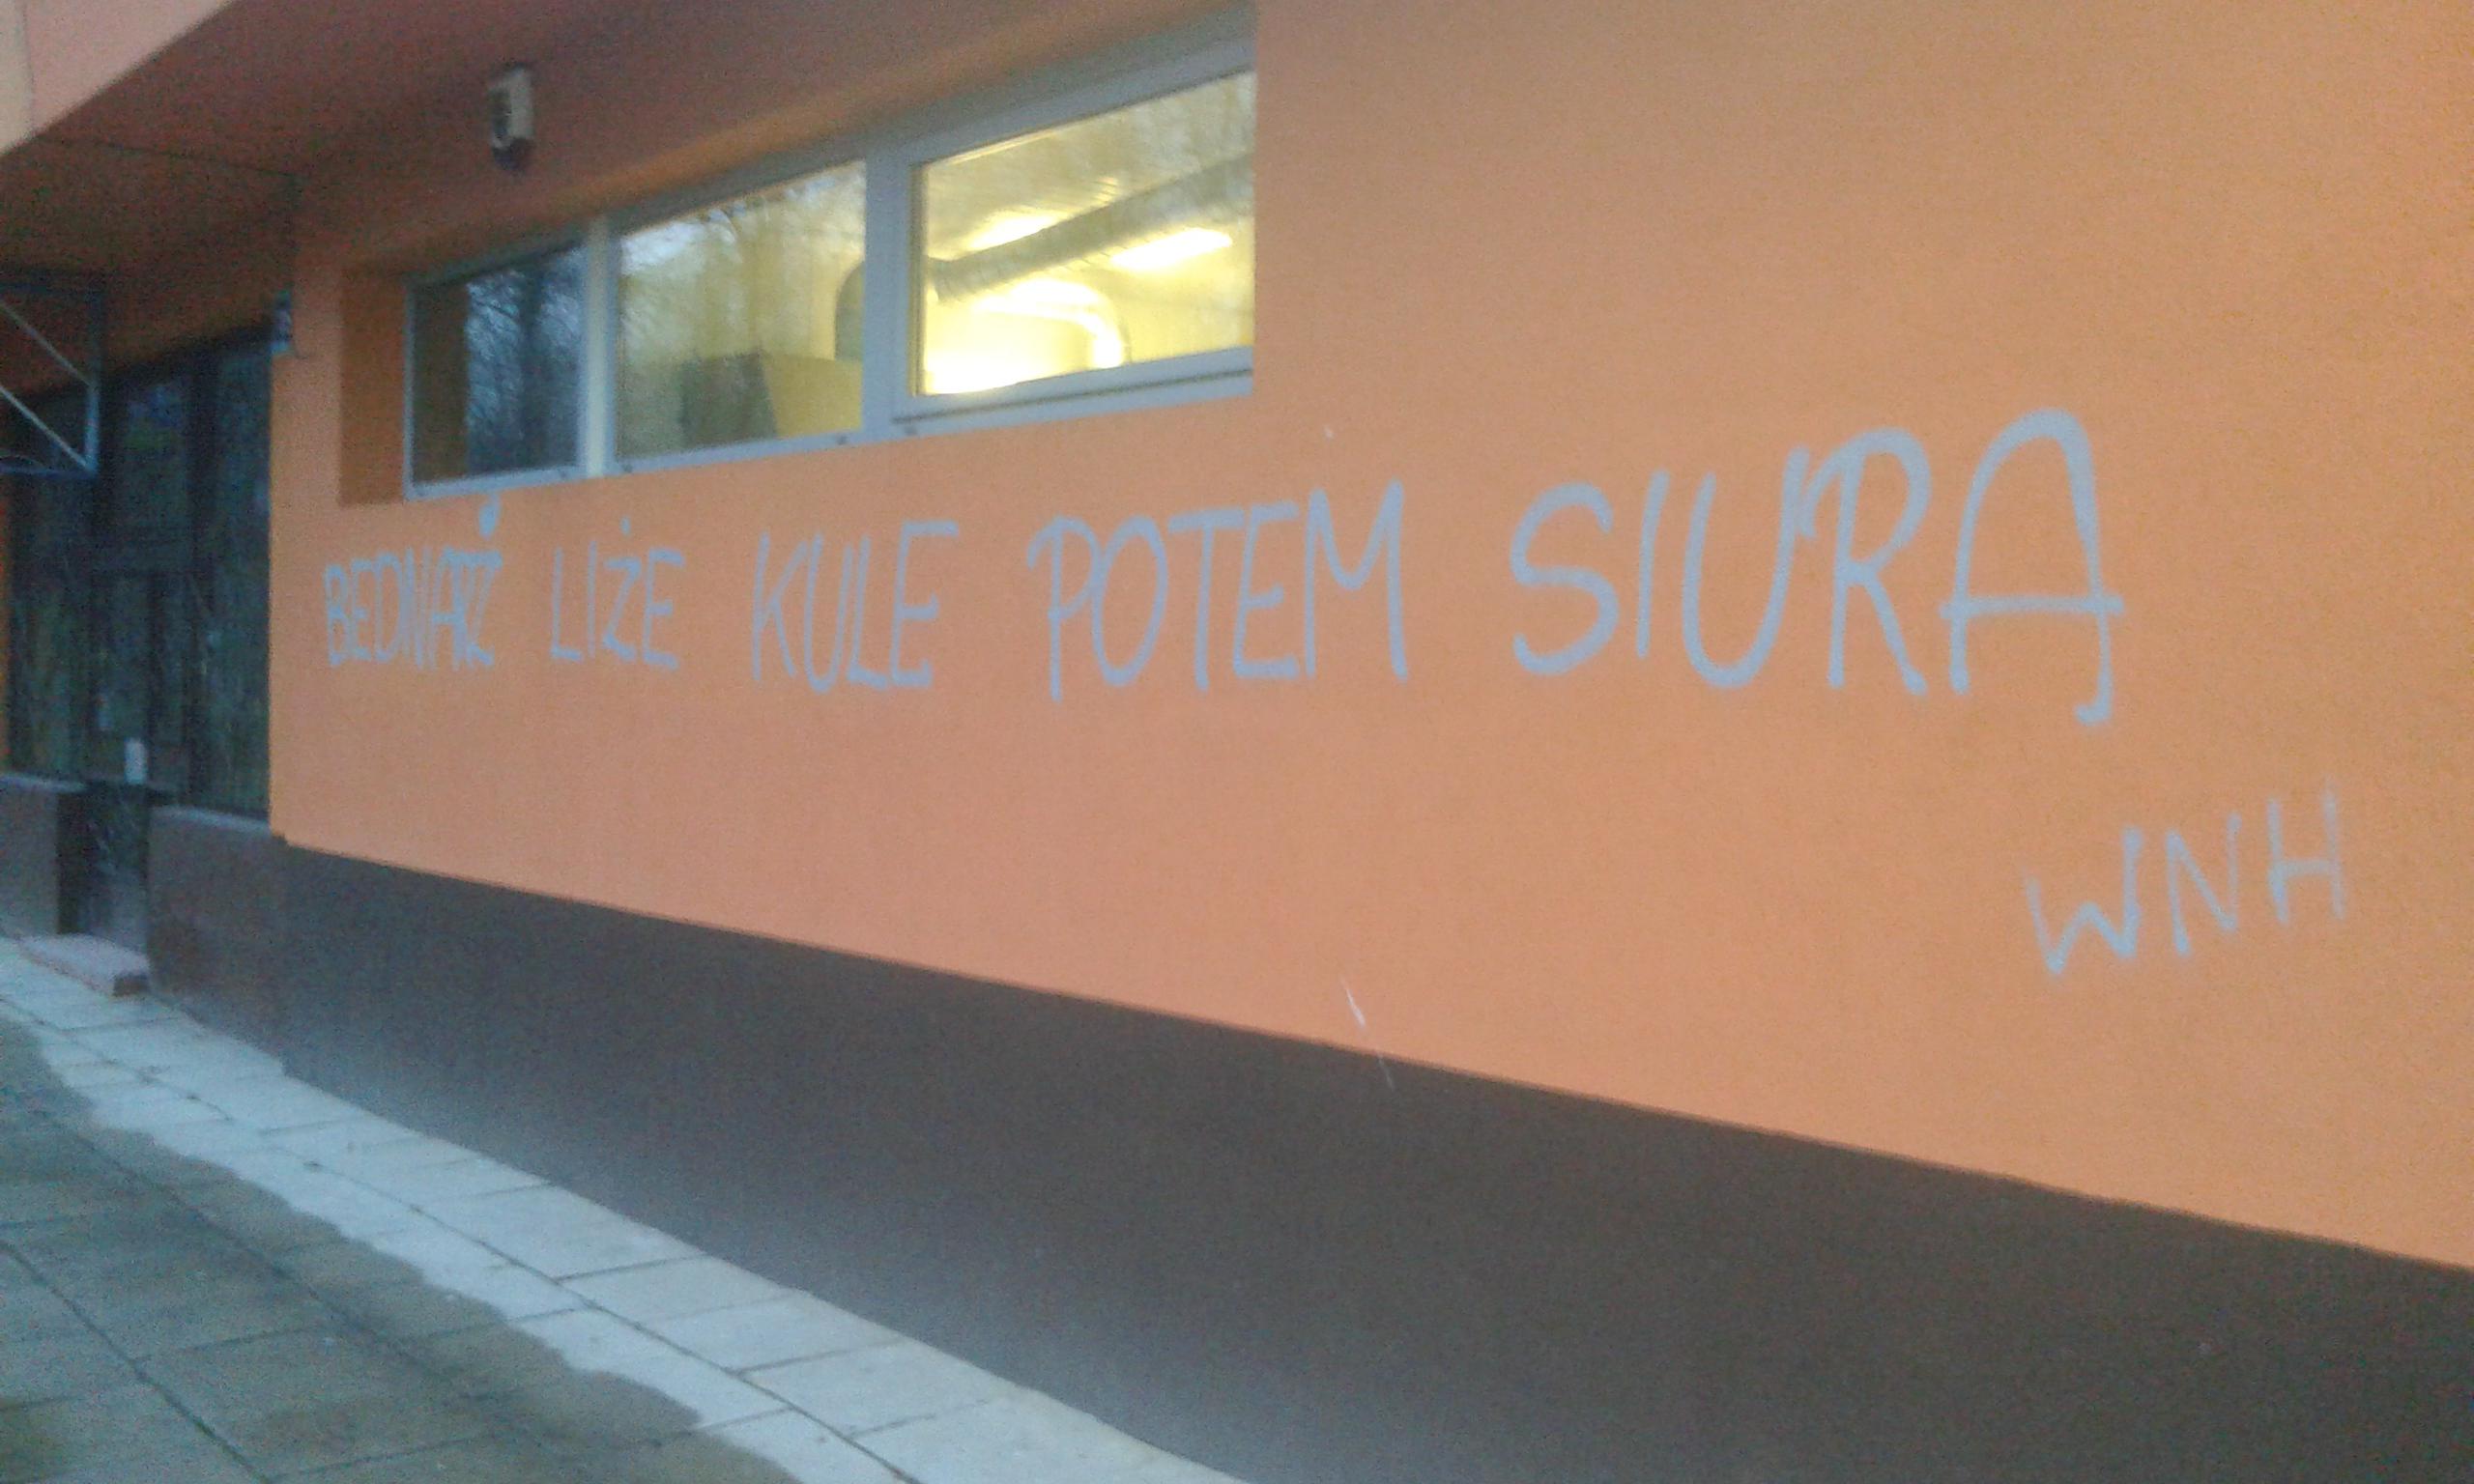 BEDNARŻ LIŻE KULE POTEM SIURA
WNH